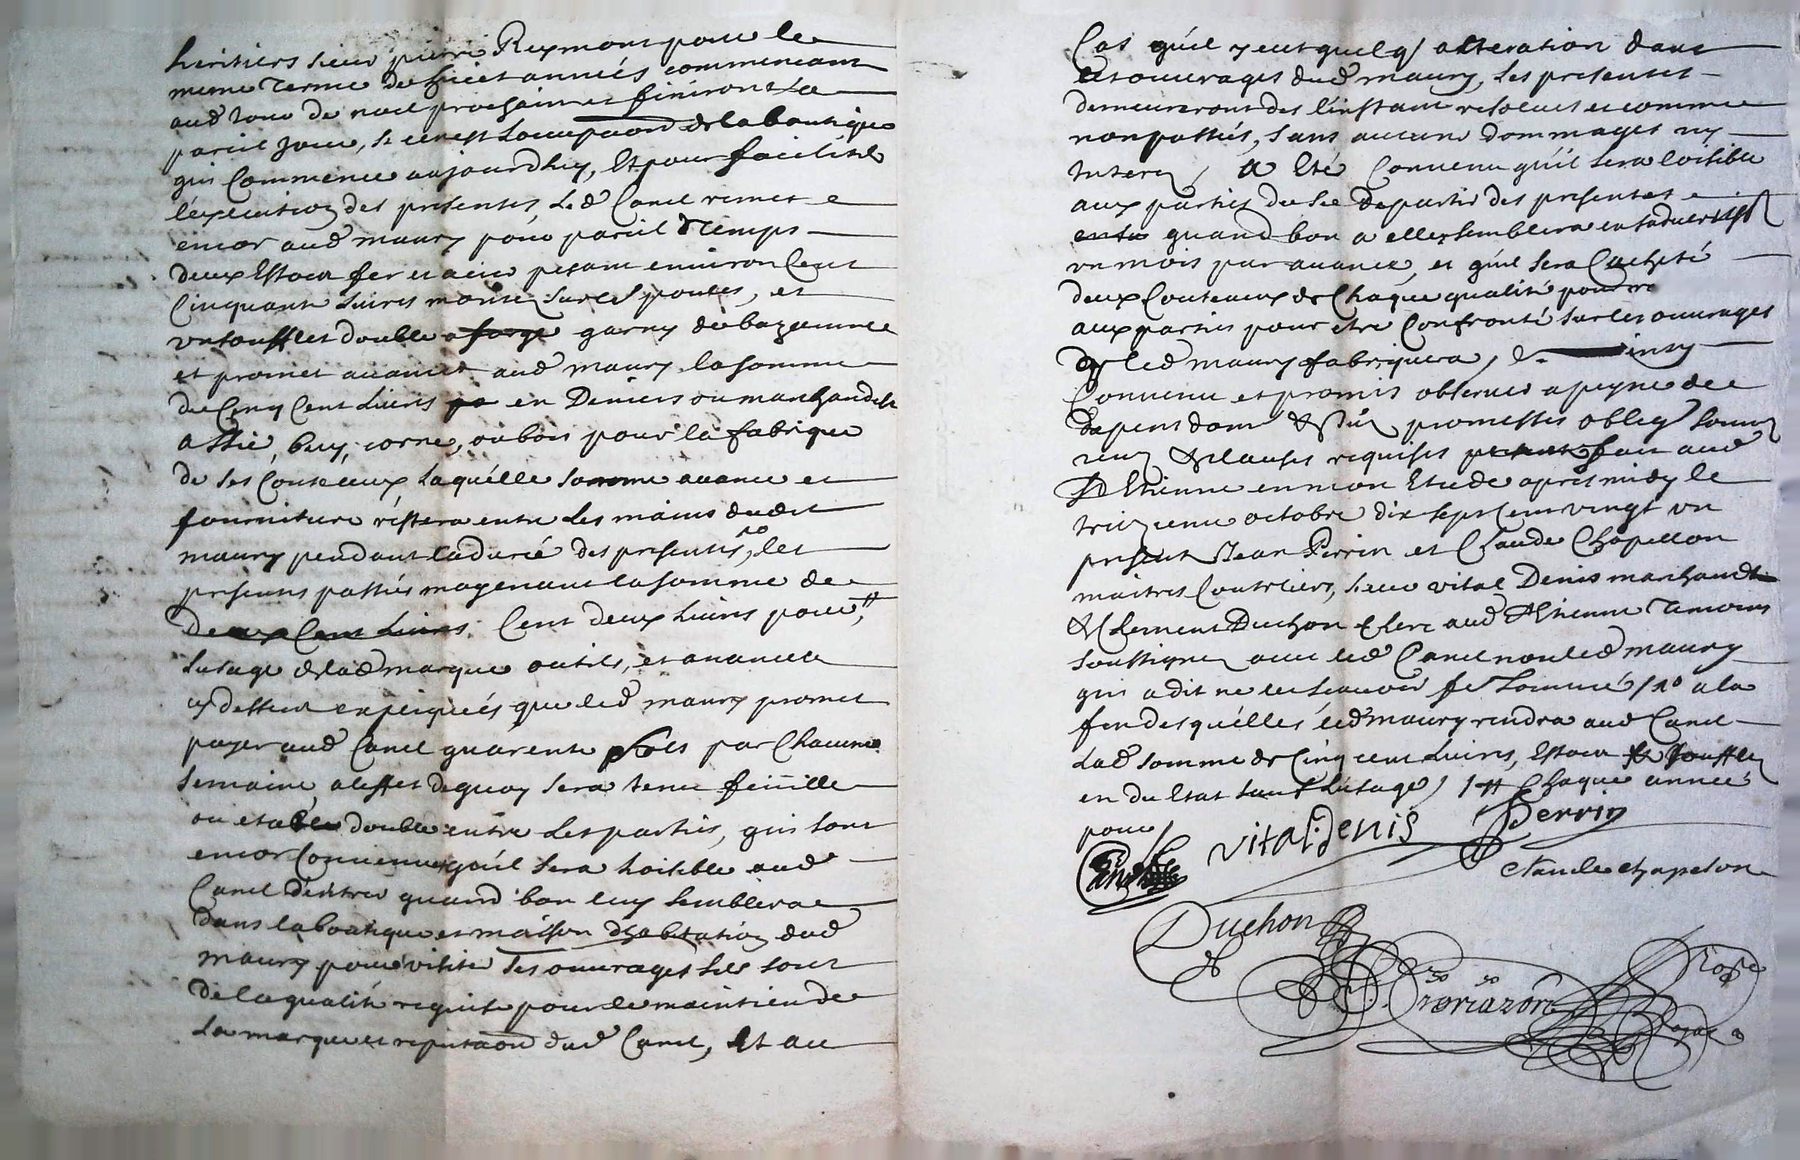 heritiers sieur pierre Reymont pour le
meme terme de huict années commencant
aud jour de noel prochain et finiront a
pareil jour, si ce nest loccupaon de la boutique
qui Commence aujourdhuy, Et pour faciliter
lexecution des presentes, Led Canel remet
encor aud maury pour pareil temps
deux Estocs fer et acier pesant environ Cent
Cinquante Livres monté sur et
un soufflet double a forge garny de bazanne
et promet avancer aud maury la somme
de Cinq Cent Livres en Deniers ou marchandise
assie, buy, corne, ou bois pour la fabrique
de ses Couteaux Laquelle somme avance et
fourniture restera entre les mains dudit
maury pendant la durée des presentes, les
presentes passées moyenant la somme de
Deux Cent Livres Cent deux Livres pour
lusage de lad marque outils, et avances
cy dessus expliquées que led maury promet
payer aud Canel quarente sols par Chacune
semaine, a leffet de quoy sera tenu feuille
ou double entre les parties, qui sont
encor Convenues quil sera loisible aud
Canel dentrer quand bon luy semblera
dans la boutique et maison dhabitation dud
maury pour visiter ses ouvrages sils sont
de la qualité requise pour le maintien de
La marque et reputaon dud Canel, Et au
Cas quil y eut quelq alteration dans
les ouvrages dud maury, les presentes
demeureront des linstant resolues et comme
non passées, sans aucuns dommages ny
Interets, A Eté Convenu quil sera loisible
aux parties de se departir des presentes
quand bon a elles semblera en sadvertissant
un mois par avance, et quil sera Cacheté
deux Couteaux de Chaque qualité
aux parties pour etre Confronté sur les ouvrages
que led maury fabriquera, ainsy
Convenu et promis observer a peyne de
depens dom promesses oblig soum
ren & clauses requises fait aud
St Etienne en mon Etude apres midy le
treizieme octobre dix sept cent vingt un
present Jean Perrin et Claude Chapellon
maitres Coutelliers, sieur vital Denis marchand
& Clement Duchon Clerc aud St Etienne temoins
soussignez avec led Canel non led maury
qui a dit ne le scavoir de ce sommé / a la
fin desquelles led maury rendra aud Canel
Lad somme de Cinq cent Livres, Estocs & soufflet
en du Etat sauf lusage / Chaque année
pour /
Canel vital denis Perrin
Claude chapelon
Duchon